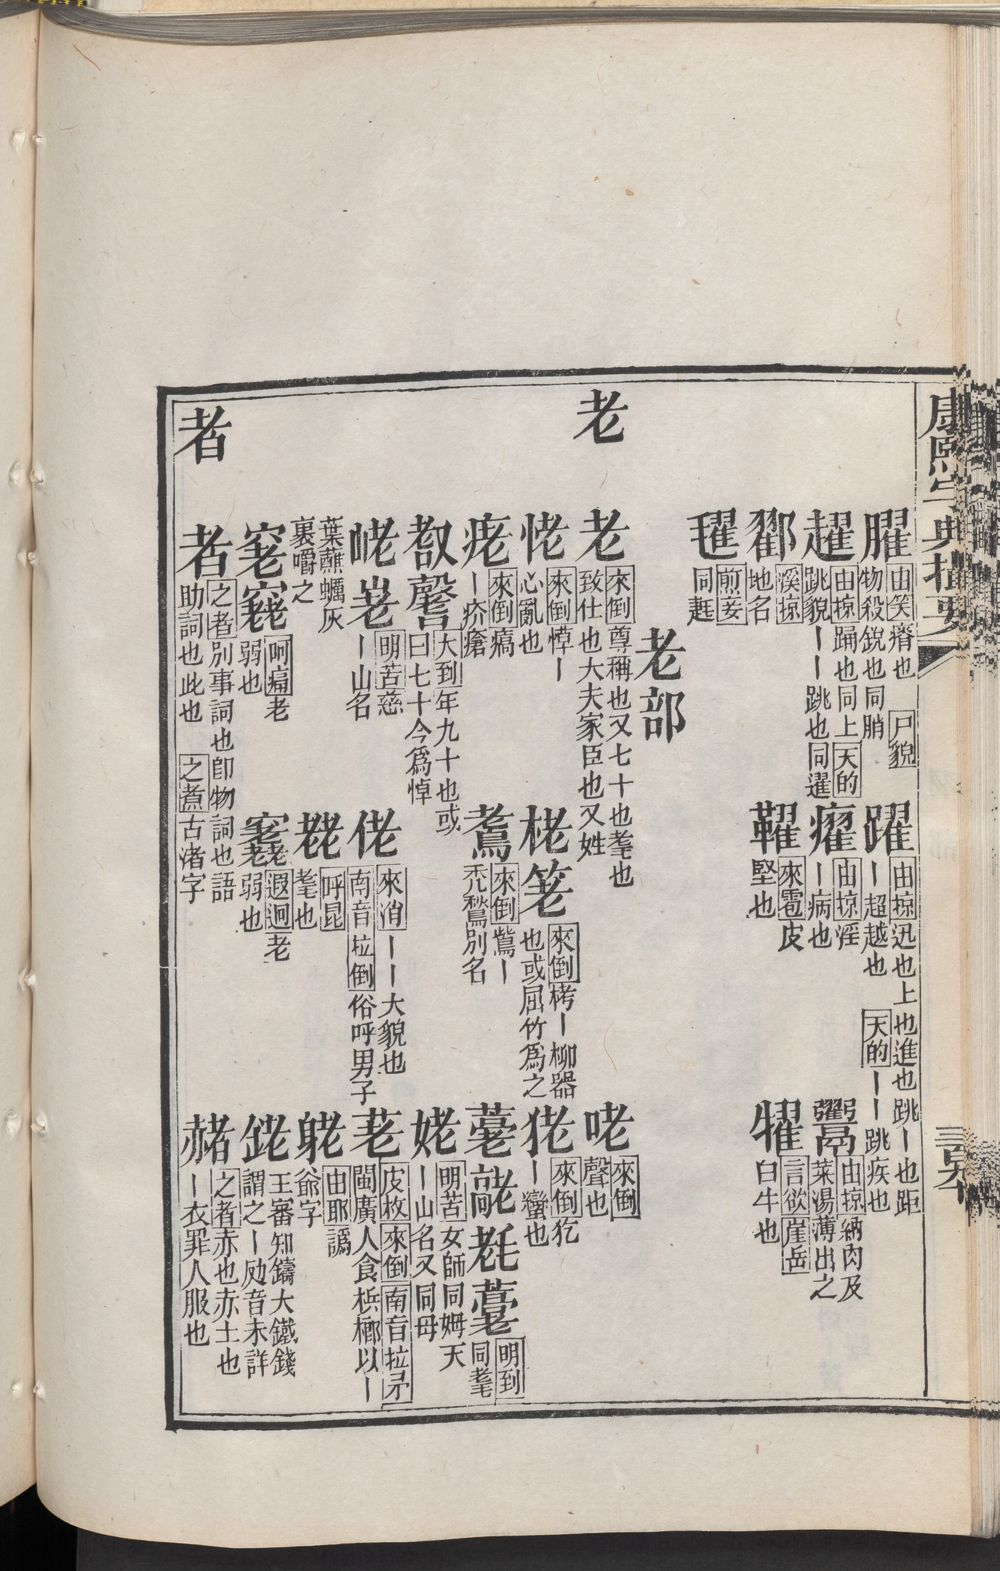 康熙字典撮要
臞 由笑 瘠也 尸貌 物殺銳也同肖
躍 由掠 迅也上也進也跳丨也距丨超越也 天的 丨丨跳疾也
趯 由掠 踊也同上 天的 跳貌丨丨跳也同躍
癯 由掠 淫丨病也
鬻 由掠 納肉及菜湯薄出之
溪掠 地名
來雹 皮堅也
言欲 崖岳 白牛也
煎妾 同
老部
老
老 來倒 尊稱也又七十也耄也致仕也大夫家臣也又姓
咾 來倒 聲也
恅 來倒 悼丨心亂也
栳 笔 來倒 栲丨柳器也或屈竹爲之
狫 來倒 犵丨蠻也
痝 來倒 瘑丨疥瘡
鴌 來倒 鷔丨禿鶖別名
明到 同耄
大到 年九十也或曰七十今爲悼
姥 明苦 女師同姆天丨山名又同母
峔 明苦 慈丨山名
佬 來消 丨丨大貌也南音 拉倒 俗呼男子
荖 皮枚 來倒 南音拉矛 閩廣人食梹榔以丨葉蘸蠣灰裏嚼之
呼昆 耄也
躼 由耶 譌爺字
呵痛 老弱也
遐迥 老弱也
銠 王審知鑄大鐵錢謂之丨 音未詳
者
者 之者 別事詞也卽物詞也語助詞也此也 之煮 古渚字
赭 之者 赤也赤土也丨衣罪人服也